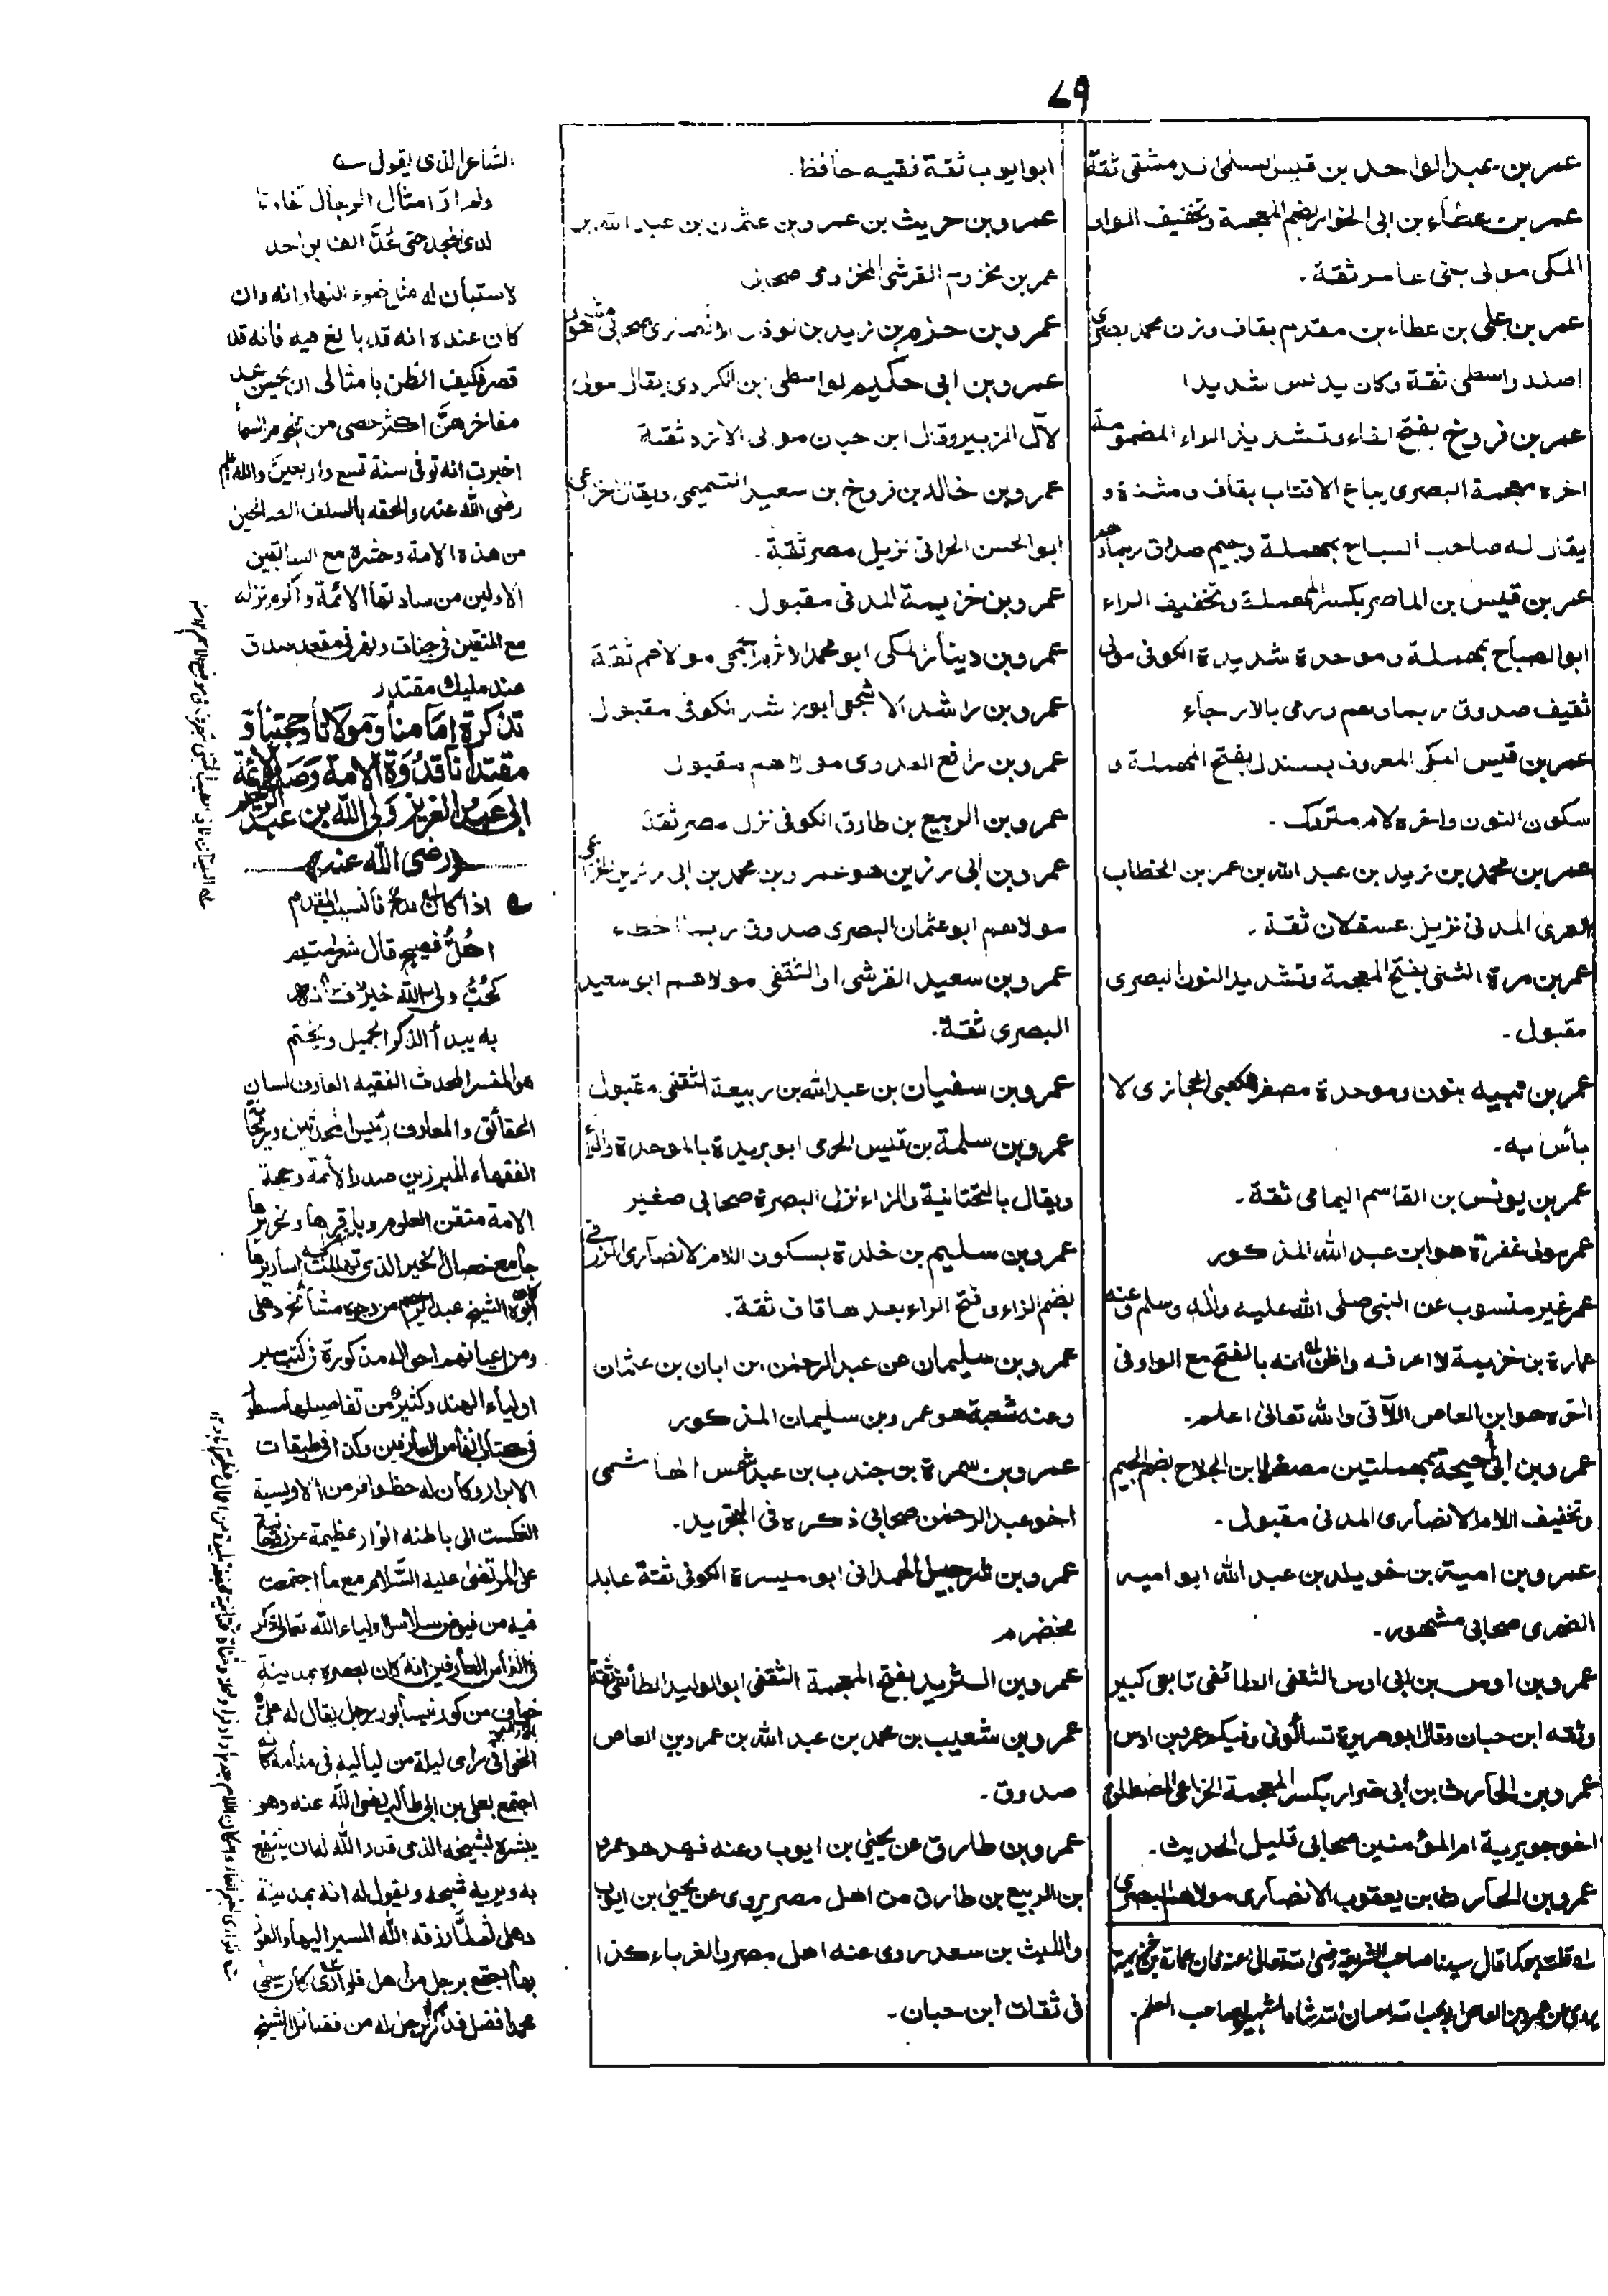 ٦٩
عمر بن عبد الواحد بن قيس السلمی الدمشقی ثقة
عمر بن عطاء بن ابی الخوار بضم المعجمة وتخفيف الواو
المکی مولی بنی عامر ثقة۔
عمر بن علی بن عطاء بن مقدم بقاف وزن محمد بصری
اصله واسطی ثقة وکان يدلس شديدا
عمر بن فروخ بفتح الفاء وتشديد الراء المضمومة
اخره معجمة البصری بياع الاقتاب بقاف ومثناة و
يقال له صاحب الساج بمهملة وجيم صدوق ربما وهم
عمر بن قيس بن الماصر بکسر المهملة وتخفيف الراء
ابو الصباح بمهملة وموحدة شديدة الکوفی مولی
ثقيف صدوق ربما وهم ورمی بالارجاء
عمر بن قيس المکی المعروف بسندل بفتح المهملة و
سکون النون واخره لام متروک۔
عمر بن محمد بن زيد بن عبد الله بن عمر بن الخطاب
العمری المدنی نزيل عسقلان ثقة۔
عمر بن مرة الشنی بفتح المعجمة وتشديد النون البصری
مقبول۔
عمر بن نبيه بنون وموحدة مصغر الکعبی الحجازی لا
بأس به۔
عمر بن يونس بن القاسم اليمامی ثقة۔
عمر مولی غفرة هو ابن عبد الله المذکور
عمر غير منسوب عن النبی صلی الله عليه واله وسلم وعنه
عمارة بن خزيمة لا اعرفه واظن انه بالفتح مع الواو فی
اخره هو ابن العاص اللآتی والله تعالی اعلم۔
عمرو بن ابی أحيحة بمهملتين مصغرا ابن الجلاح بضم الجيم
وتخفيف اللام الانصاری المدنی مقبول۔
عمرو بن امية بن خويلد بن عبد الله ابو اميه
الضمری صحابی مشهور۔
عمرو بن اوس بن ابی اوس الثقفی الطائفی تابعی کبير
وثقه ابن حبان وقال ابو هريرة تسألونی وفيکم عمرو بن اوس
عمرو بن الحارث بن ابی ضرار بکسر المعجمة الخزاعی المصطلقی
اخو جويرية ام المؤمنين صحابی قليل الحديث۔
عمرو بن الحارث بن يعقوب الانصاری مولاهم البصری
قلت هو کما قال سيدنا صاحب الشريعة رضی الله تعالی عنه فان عمارة بن خزيمة
يروی عن عمرو بن العاص احسان الله شاه الشهير بصاحب العلم۔
ابو ايوب ثقة فقيه حافظ۔
عمرو بن حريث بن عمرو بن عثمان بن عبد الله بن
عمر بن مخزوم القرشی المخزومی صحابی
عمرو بن حزم بن زيد بن لوذان الانصاری صحابی مشهور
عمرو بن ابی حکيم الواسطی بن الکردی يقال مولی
لآل الزبير وقال ابن حبان مولی الازد ثقة
عمرو بن خالد بن فروخ بن سعيد التميمی ويقال الخزاعی
ابو الحسن الحرانی نزيل مصر ثقة۔
عمرو بن خزيمة المدنی مقبول۔
عمرو بن دينار المکی ابو محمد الاثرم الجمحی مولاهم ثقة
عمرو بن راشد الاشجعی ابو راشد الکوفی مقبول
عمرو بن رافع العدوی مولاهم مقبول
عمرو بن الربيع بن طارق الکوفی نزل مصر ثقة
عمرو بن ابی رزين هو عمرو بن محمد بن ابی رزين الخزاعی
مولاهم ابو عثمان البصری صدوق ربما اخطاء
عمرو بن سعيد القرشی او الثقفی مولاهم ابو سعيد
البصری ثقة۔
عمرو بن سفيان بن عبد الله بن ربيعة الثقفی مقبول
عمرو بن سلمة بن قيس الجرمی ابو بريدة بالموحدة والراء
ويقال بالتحتانية والزاء نزل البصرة صحابی صغير
عمرو بن سليم بن خلدة بسکون اللام الانصاری الزرقی
بضم الزاء وفتح الراء بعدها قاف ثقة۔
عمرو بن سليمان عن عبد الرحمن بن ابان بن عثمان
وعنه شعبة هو عمرو بن سليمان المذکور
عمرو بن سمرة بن جندب بن عبد شمس الهاشمی
اخو عبد الرحمن صحابی ذکره فی التجريد۔
عمرو بن شرحبيل الهمدانی ابو ميسرة الکوفی ثقة عابد
مخضرم
عمرو بن الشريد بفتح المعجمة الثقفی ابو الوليد الطائفی ثقة
عمرو بن شعيب بن محمد بن عبد الله بن عمرو بن العاص
صدوق۔
عمرو بن طارق عن يحيی بن ايوب وعنه فهد هو عمرو
بن الربيع بن طارق من اهل مصر يروی عن يحيی بن ايوب
والليث بن سعد روی عنه اهل مصر والغرباء کذا
فی ثقات ابن حبان۔
الشاعر الذی يقول
ولم ار امثال الرجال تفاوتا
لدی المجد حتی عُدَّ الف بواحد
لاستبان له مثل ضوء النهار انه وان
کان عنده انه قد بالغ فيه فانه قد
قصر فکيف الظن بامثالی ان يحسن عد
مفاخر هنَّ اکثر حصی من نجوم السماء
اخبرت انه توفی سنة تسع واربعين والله اعلم
رضی الله عنه والحقه بالسلف الصالحين
من هذه الامة وحشره مع السابقين
الاولين من ساداتها الائمة واکرم نزله
مع المتقين فی جنات ونهر فی مقعد صدق
عند مليک مقتدر
تذکرة امامنا ومولانا وحجتنا و
مقتدانا قدوة الامة وصدر الائمة
ابی عبد العزيز ولی الله بن عبد الرحيم
(رضی الله عنه)
اذا کان مدح فالنسيب المقدم
اکل فصيح قال شعرا متيم
لحُبُّ ولی الله خير فانه
به يبدأ الذکر الجميل ويختم
هو المفسر المحدث الفقيه العارف لسان
الحقائق والمعارف رئيس المحدثين
الفقهاء المبرزين صدر الأئمة وحجة
الامة متقن العلوم وباقرها ونحريرها
جامع خصال الخير الذی
ابوه الشيخ عبد الرحيم کان من وجوه مشائخ دهلی
ومن اعيانهم احواله مذکورة فی کتب سير
اولياء الهند وکثيرٌ من تفاصيلها مسطور
فی کتاب انفاس العارفين وکذا فی طبقات
الابرار وکان له حظ وافر من الاويسية
انعکست الی باطنه انوار عظيمة عن
علی المرتضی عليه السلام مع ما اجتمعت
فيه من فيوض سلاسل اولياء الله تعالی ذکر
فی انفاس العارفين انه کان بعصره بمدينة
خواف من کور نيسابور رجل يقال له
الخوافی رای ليلة من لياليه فی منامه کانه
اجتمع بعلی بن ابی طالب رضی الله عنه وهو
يبشره بشيخه الذی قدر الله له ان ينتفع
به ويريه شبحه ويقول له انه بمدينة
دهلی ثم لما رزقه الله المسير اليها
بها اجتمع برجل من اهل
محمد افضل فذکر الرجل له من فضائل الشيخ